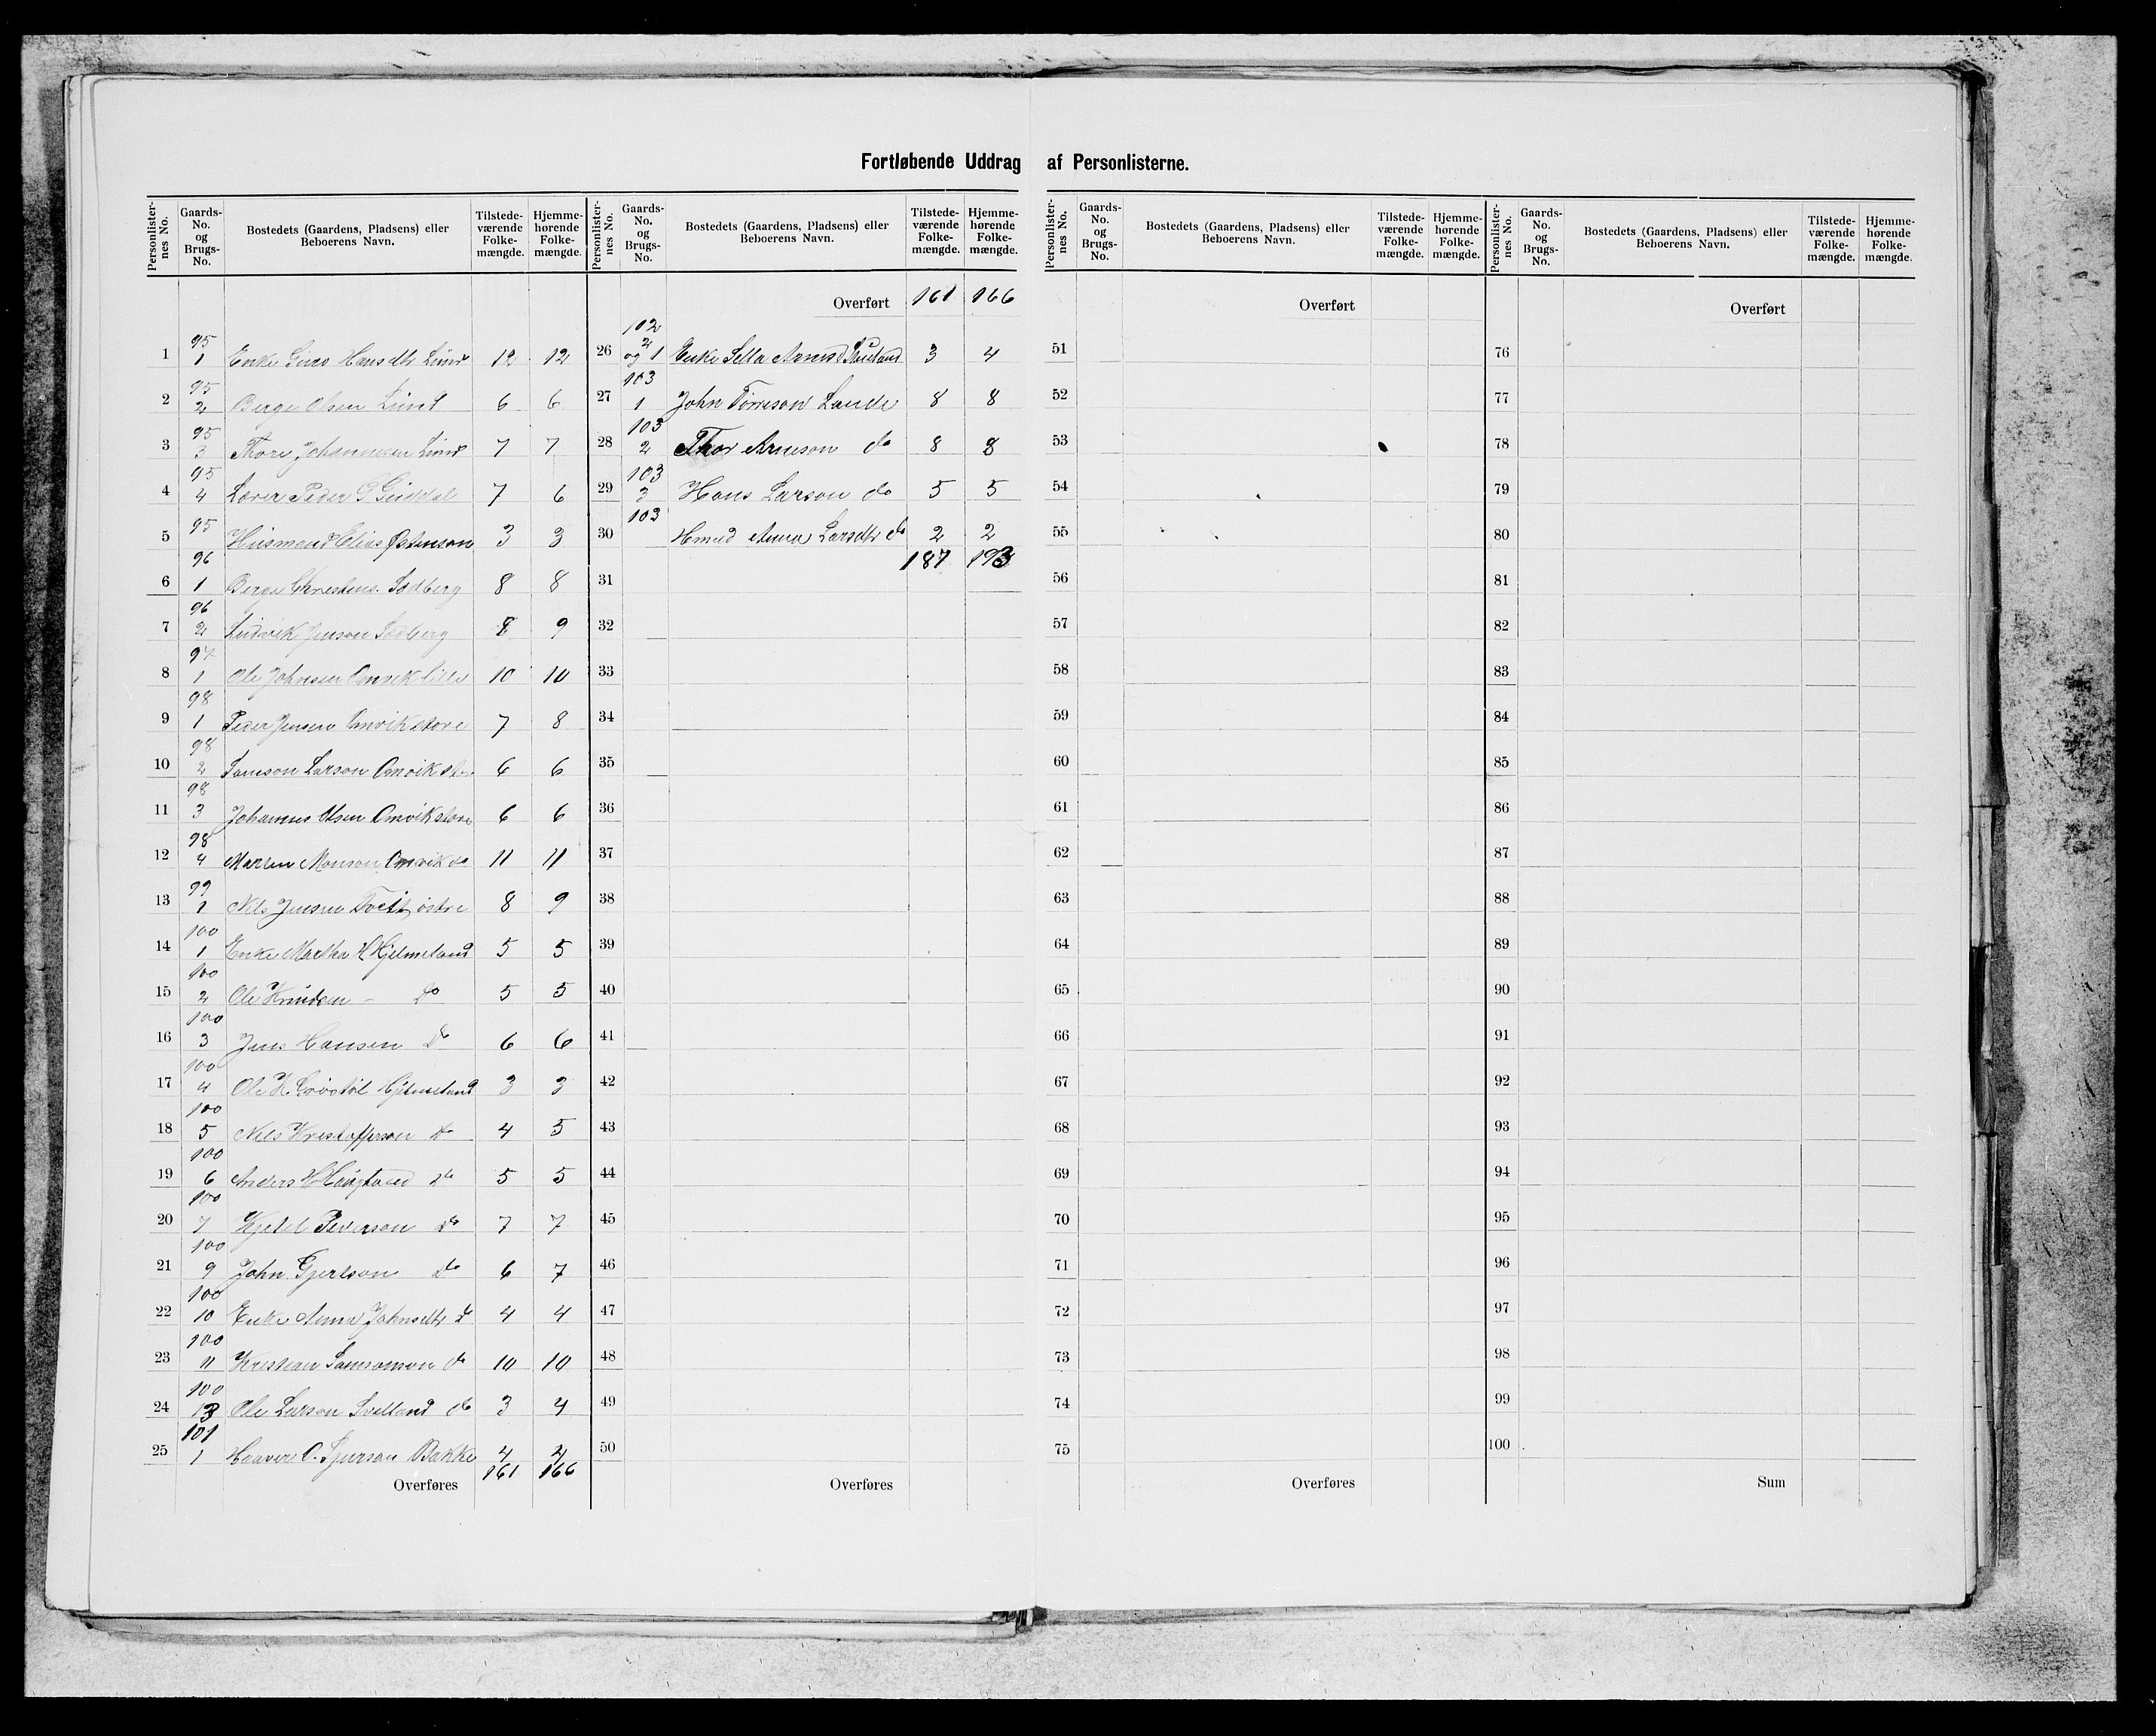 Fortløbende Uddrag af Personlisterne.
Personlisternes No. Gaards-No. og Brugs-No. Bostedets (Gaardens, Pladsens) eller Beboerens Navn. Tilstedeværende Folkemængde. Hjemmehørende Folkemængde.
1 95 1 Enke Guro Hansdtr Lund 12 12
2 95 2 Berge Olsen Lund 6 6
3 95 3 Thore Johannesen Lund 7 7
4 95 4 Lærer Peder G Guddal 7 6
5 95 Husmand Elias Østenson 3 3
6 96 1 Berge Christens. Sodberg 8 8
7 96 2 Ludvik Jenson Sodberg 8 9
8 97 1 Ole Johnsen Omvik lille 10 10
9 98 1 Peder Jensen Omvik store 7 8
10 98 2 Samson Larson Omvik store 6 6
11 98 3 Johannes Olsen Omvik store 6 6
12 98 4 Marten Monson Omvik do 11 11
13 99 1 Nils Jensen Tveit østre 8 9
14 100 1 Enke Martha H Hjelmeland 5 5
15 100 2 Ole Knudsen - do 5 5
16 100 3 Jens Hansen do 6 6
17 100 4 Ole K. Hjelmeland 3 3
18 100 5 Nils Kristofferson do 4 5
19 100 6 Anders H Haugland do 5 5
20 100 7 Kjetel Pederson do 7 7
21 100 9 John Gjertson do 6 7
22 100 10 Enke Anna Johnsdtr do 4 4
23 100 11 Kristian Samsonson do 10 10
24 100 13 Ole Larson Svelland do 3 4
25 101 1 Haaver O. Sjurson Bakke 4 4
161 166
Overføres
Personlisternes No. Gaards-No. og Brugs-No. Bostedets (Gaardens, Pladsens) eller Beboerens Navn. Tilstedeværende Folkemængde. Hjemmehørende Folkemængde.
Overført 161 166
26 102 2 og 1 Enke Arnesd 3 4
27 103 1 John Tørreson Lande 8 8
28 103 2 Thor Arneson do 8 8
29 103 3 Hans Larson do 5 5
30 103 Hmnd Anna Larsdtr do 2 2
187 193
31
32
33
34
35
36
37
38
39
40
41
42
43
44
45
46
47
48
49
50
Overføres
Personlisternes No. Gaards-No. og Brugs-No. Bostedets (Gaardens, Pladsens) eller Beboerens Navn. Tilstedeværende Folkemængde. Hjemmehørende Folkemængde.
Overført
51
52
53
54
55
56
57
58
59
60
61
62
63
64
65
66
67
68
69
70
71
72
73
74
75
Overføres
Personlisternes No. Gaards-No. og Brugs-No. Bostedets (Gaardens, Pladsens) eller Beboerens Navn. Tilstedeværende Folkemængde. Hjemmehørende Folkemængde.
Overført
76
77
78
79
80
81
82
83
84
85
86
87
88
89
90
91
92
93
94
95
96
97
98
99
100
Sum